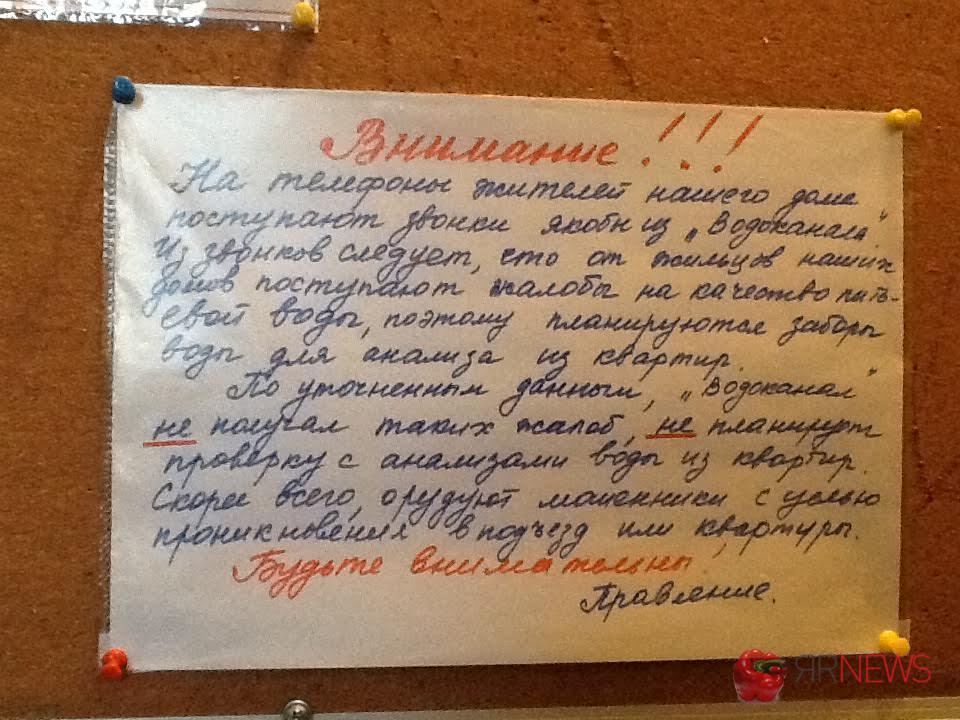 Внимание!!!
На телефоны жителей нашего дома
поступают звонки якобы из „Водоканала".
Из звонков следует, что от жильцов наших
домов поступают жалобы на качество пить-
евой воды, поэтому планируются заборы
воды для анализа из квартир.
По уточненным данным, „Водоканал"
не получал таких жалоб, не планирует
проверку с анализами воды из квартир.
Скорее всего, орудуют мошенники с целью
проникновения в подъезд или квартиры.
Будьте внимательны!
Правление.
ЯRNEWS